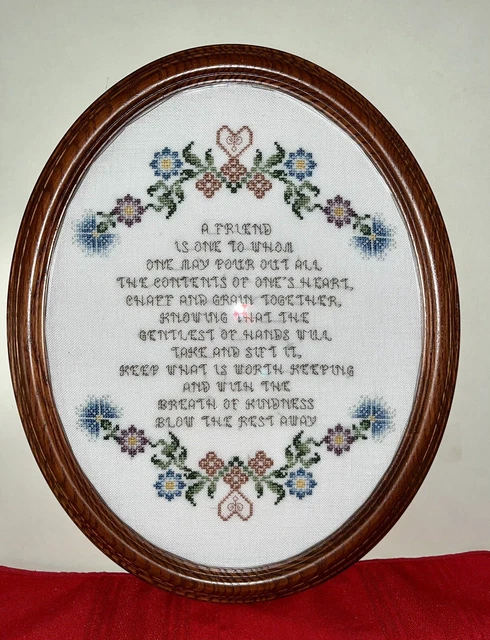 A FRIEND
IS ONE TO WHOM
ONE MAY POUR OUT ALL
THE CONTENTS OF ONE'S HEART,
CHAFF AND GRAIN TOGETHER,
KNOWING THAT THE
GENTLEST OF HANDS WILL
TAKE AND SIFT IT,
KEEP WHAT IS WORTH KEEPING
AND WITH THE
BREATH OF KINDNESS
BLOW THE REST AWAY